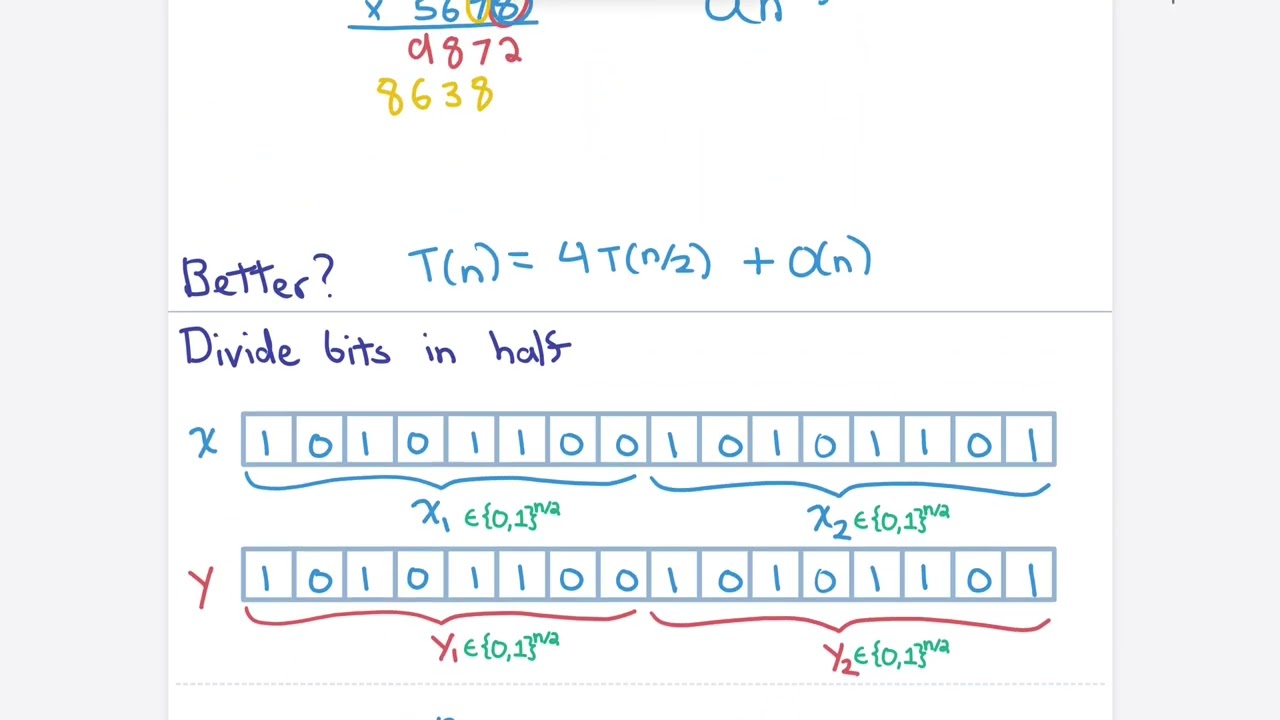 x 5678
9872
8638
Better? T(n) = 4T(n/2) + O(n)
Divide bits in half
x 1 0 1 0 1 1 0 0 1 0 1 0 1 1 0 1
x₁ ∈{0,1}^{n/2} x₂ ∈{0,1}^{n/2}
y 1 0 1 0 1 1 0 0 1 0 1 0 1 1 0 1
y₁ ∈{0,1}^{n/2} y₂ ∈{0,1}^{n/2}